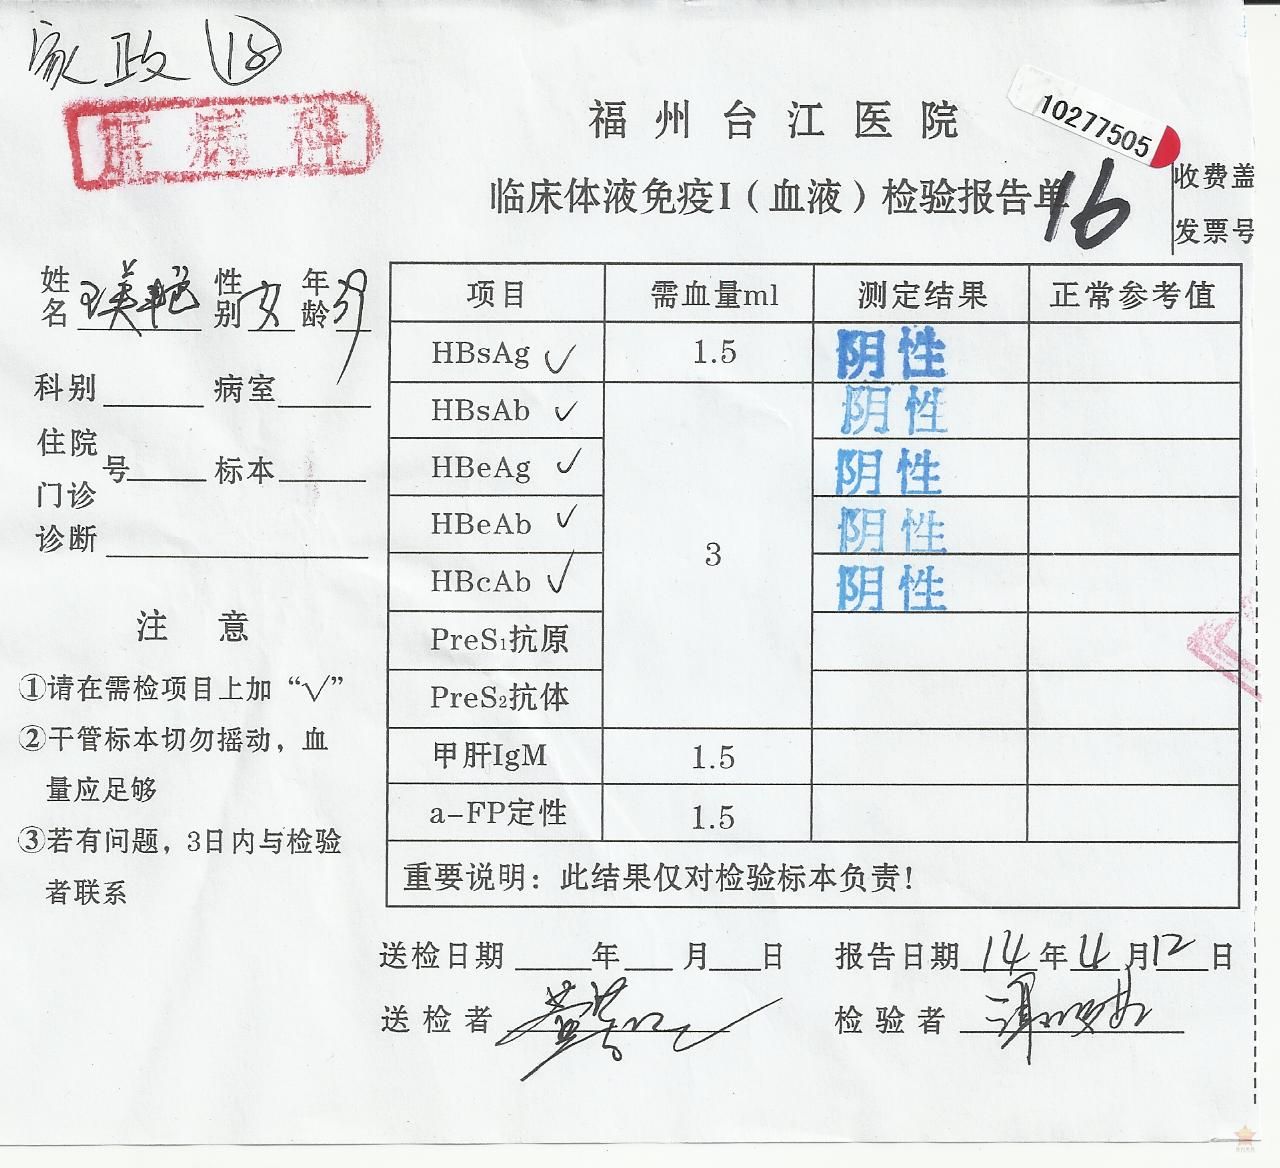 家政 18
肝病科
福州台江医院
10277505
临床体液免疫I（血液）检验报告单 16
收费盖
发票号
姓名 性别 女 年龄 39
科别 病室
住院
门诊 号 标本
诊断
注 意
①请在需检项目上加“√”
②干管标本切勿摇动，血
量应足够
③若有问题，3日内与检验
者联系
项目 需血量ml 测定结果 正常参考值
HBsAg √ 1.5 阴性
HBsAb √ 阴性
HBeAg √ 阴性
HBeAb √ 3 阴性
HBcAb √ 阴性
PreS₁抗原
PreS₂抗体
甲肝IgM 1.5
a-FP定性 1.5
重要说明：此结果仅对检验标本负责！
送检日期 年 月 日 报告日期 14 年 4 月 12 日
送检者 检验者